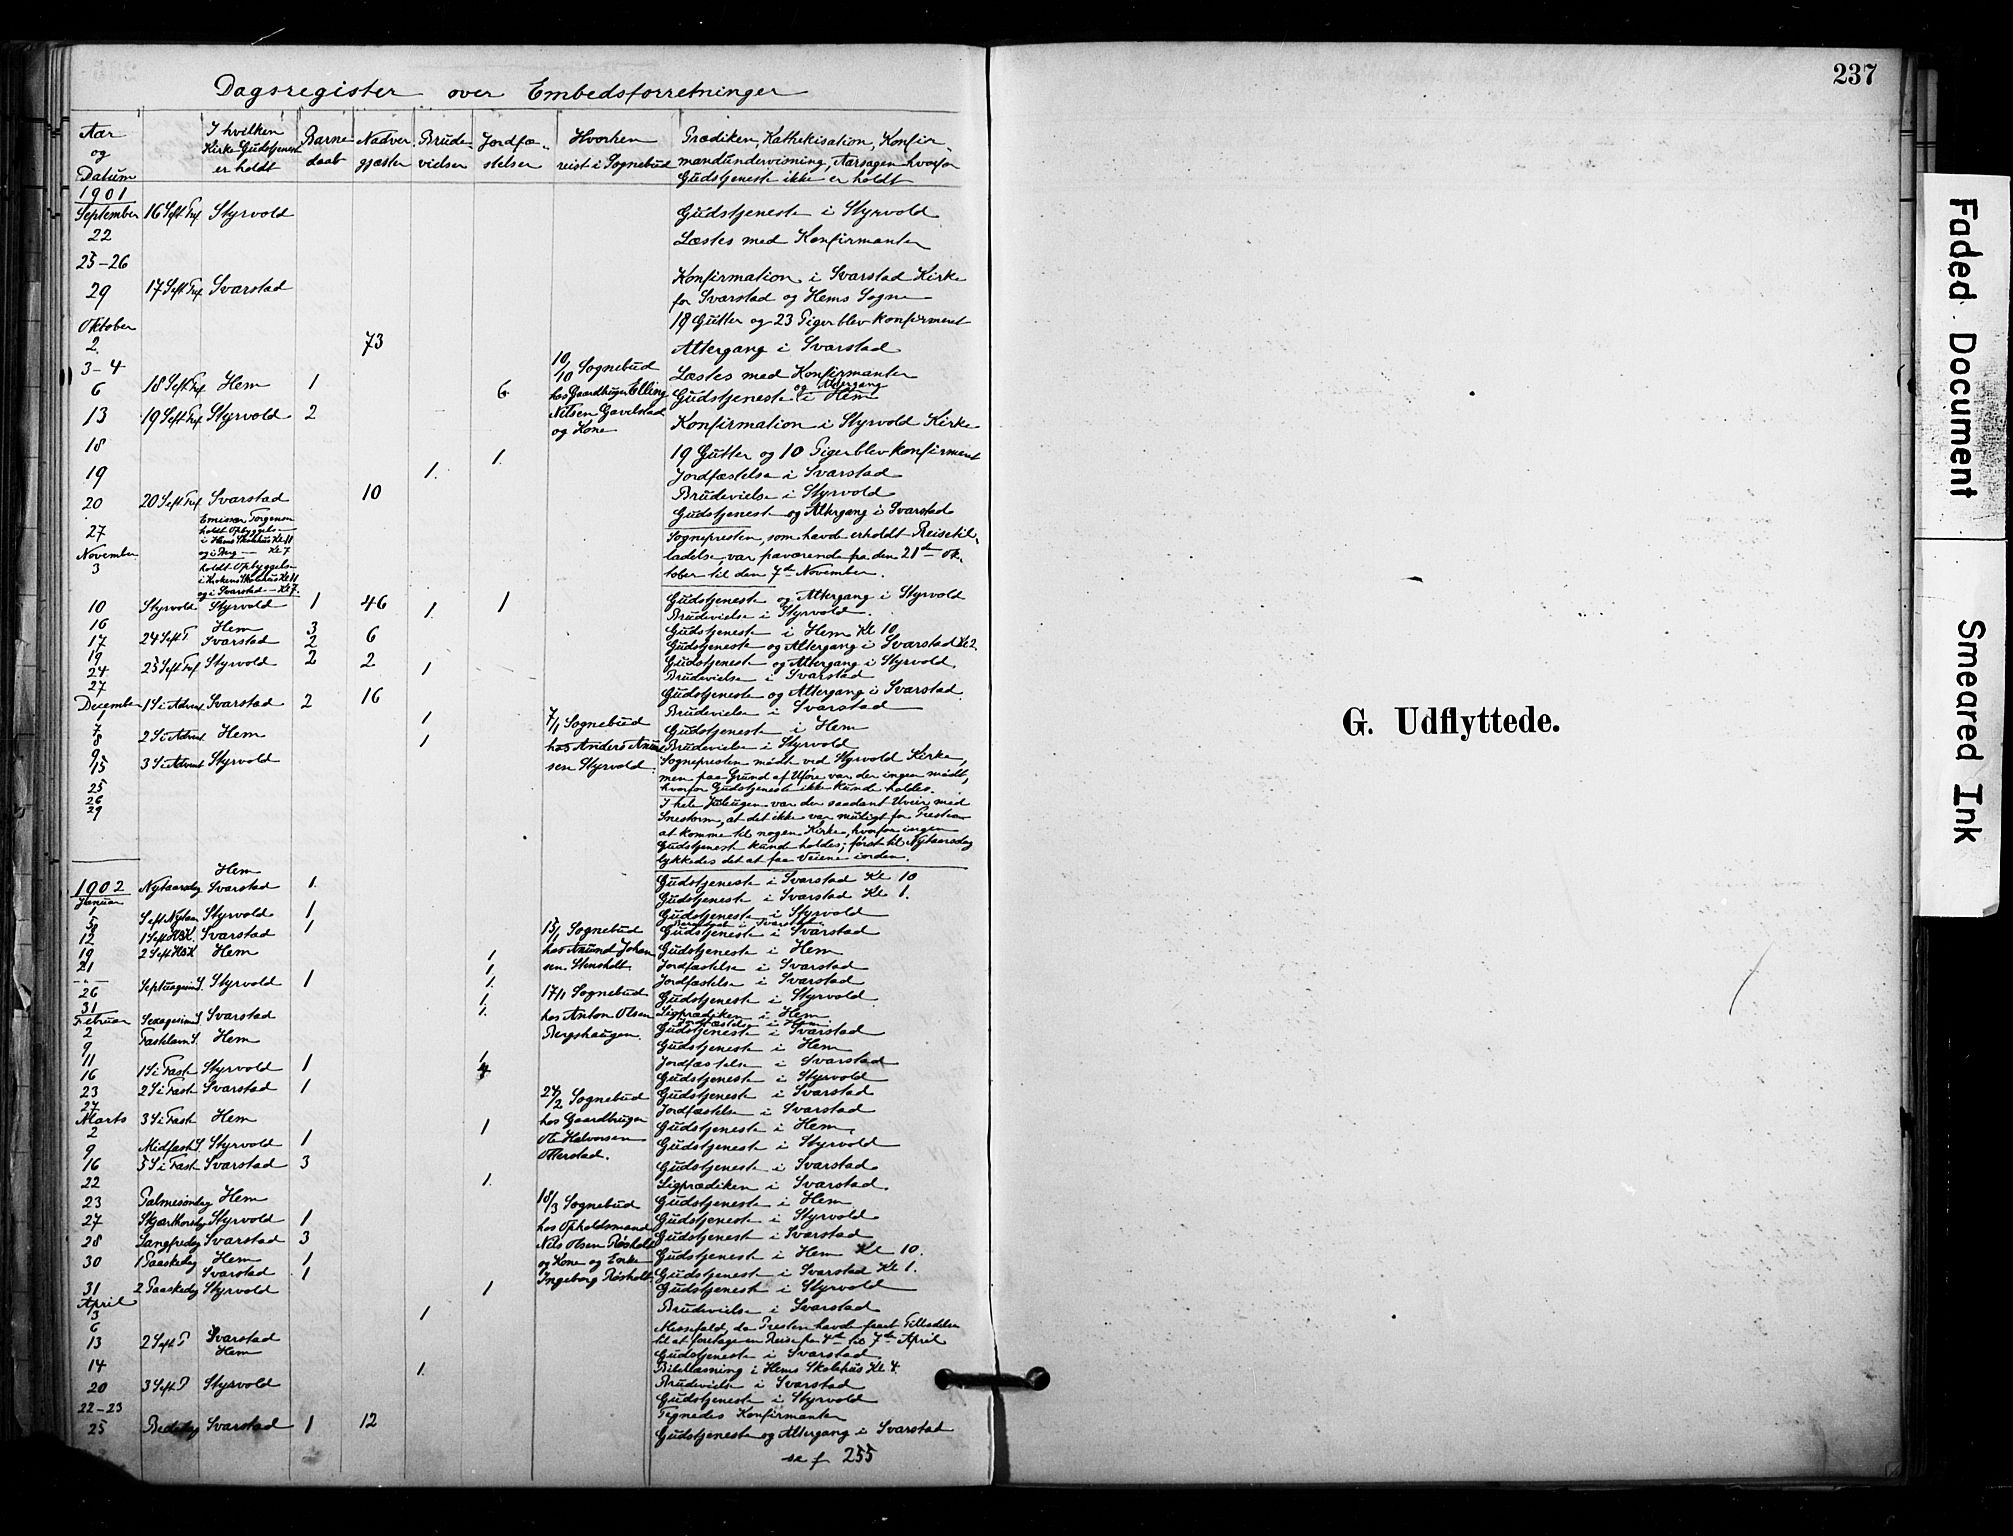 Dagsregister over Embedsforretninger
Aar og Datum | I hvilken Kirke Gudstjenest er holdt | Barne daab | Nadver gjæster | Brude vielser | Jordfæ- stelser | Hvorhen reist i Sognebud | Prædiken, Kathekisation, Konfir- mandundervisning, Aarsagen hvorfor Gudstjeneste ikke er holdt
1901
September 22 16 S eft Tref Styrvold Gudstjeneste i Styrvold
25-26 Læstes med Konfirmanter
29 17 S eft Tref Svarstad Konfirmation i Svarstad Kirke
for Svarstad og Hems Sogne
18 Gutter og 23 Piger blev konfirmeret
Oktober
2. 73 Altergang i Svarstad
3-4 Læstes med Konfirmanter
6 18 S eft Tref Hem 1 6 Gudstjeneste og Altergang i Hem
10/10 Sognebud
hos Gaardbruger Elling
Nilsen Gavelstad
og Kone
13 19 S eft Tref Styrvold 2 Konfirmation i Styrvold Kirke
19 Gutter og 10 Piger blev konfirmeret
18 1. Jordfæstelse i Svarstad
19 1. Brudevielse i Styrvold
20 20 S eft Tref Svarstad 10 Gudstjenest og Altergang i Svarstad
27 Emissær Torgersen
holdt Opbyggelse
i Hems Skolehus Kl 11
og i Berg — Kl 7
November
3 holdt Opbyggelse
i Kirkens Skolehus Kl 11
og i Svarstad — Kl 7.
Sognepresten, som havde erholdt Reisetil-
ladelse, var fraværende fra den 21de Ok-
tober til den 7de November.
10 Styrvold Styrvold 1 46 1 Gudstjeneste og Altergang i Styrvold
16 1 Brudevielse i Styrvold.
17 24 S eft T Hem 3 Gudstjeneste i Hem Kl 10
Svarstad 2 6 Gudstjeneste og Altergang i Svarstad Kl 2
19
24 25 S eft Tref Styrvold 2 2 Gudstjenest og Altergang i Styrvold
27 1 Brudevielse i Svarstad
December
1 1 S i Advent Svarstad 2 16 Gudstjeneste og Altergang i Svarstad
7 1 Brudevielse i Svarstad
8 2 S i Advent Hem Gudstjeneste i Hem
9 1 Brudevielse i Styrvold
7/1 Sognebud
hos Anders Anund
sen Styrvold.
15 3 S i Advent Styrvold Sognepresten mødte ved Styrvold Kirke,
men paa Grund af Uføre var der ingen mødt,
hvorfor Gudstjeneste ikke kunde holdes.
25
26
29
I hele Juleugen var der saadant Uveir med
Snestorm, at det ikke var muligt for Presten
at komme til nogen Kirke, hvorfor ingen
Gudstjenest kunde holdes; først til Nytaarsdag
lykkedes det at faa Veiene iorden.
1902
Januar
1 Nytaarsdag Hem Gudstjeneste i Svarstad Kl 10
Svarstad 1. Gudstjeneste i Svarstad Kl 1.
5 S eft Nytaar Styrvold 1 Gudstjeneste i Styrvold
12 1 S eft H3K. Svarstad 1 Gudstjeneste i Svarstad
19 2 S eft H3K Hem Gudstjeneste i Hem
15/1 Sognebud
hos Anund Johan
sen Stensholt
21 1 Jordfæstelse i Svarstad
1 Jordfæstelse i Svarstad
26 Septuagesima S. Styrvold 1 1. Gudstjeneste i Styrvold
17/1 Sognebud
hos Anton Olsen
Bergshaugen.
31 1. Ligprædiken i Hem
Februar
2 Sexagesima S. Svarstad Gudstjeneste i Svarstad
9 Fastelavns S. Hem Gudstjeneste i Hem
11 1 Jordfæstelse i Svarstad
16 1 S i Fast Styrvold 1 4 Gudstjeneste i Styrvold
23 2 S i Fast Svarstad 1 Gudstjeneste i Svarstad
27 Jordfæstelse i Svarstad
24/2 Sognebud
hos Gaardbruger
Ole Halvorsen
Otterstad.
Marts
2 3 S i Fast Hem 1 Gudstjeneste i Hem.
9 Midfaste S. Styrvold 1 Gudstjeneste i Styrvold
16 5 S i Fast Svarstad 3 Gudstjeneste i Svarstad
22 1. Ligprædiken i Svarstad
23 Palmesøndag Hem Gudstjeneste i Hem
27 Skjærthorsdag Styrvold 1 Gudstjeneste i Styrvold
28 Langfredag Svarstad 3 Gudstjeneste i Svarstad
30 1 Paaskedag Hem 1 Gudstjeneste i Hem Kl 10.
Svarstad 1 Gudstjeneste i Svarstad Kl 1.
18/3 Sognebud
hos Opholdsmand
Nils Olsen Røsholt
og Kone og Enke
Ingeborg Røsholt
31 2 Paaskedag Styrvold 1 Gudstjeneste i Styrvold
April
3 1 Brudevielse i Svarstad
6 Messefald, da Presten havde faaet Tilladelse
til at foretage en Reise fra 4de til 7de April
13 2 S eft P Svarstad Gudstjeneste i Svarstad
Hem Bibellæsning i Hems Skolehus Kl 4
14 1. Brudevielse i Svarstad
20 3 S eft P Styrvold Gudstjeneste i Styrvold
22-23 Tegnedes Konfirmanter
25 Bededag Svarstad 1 12 Gudstjeneste og Altergang i Svarstad
se f 255
237
G. Udflyttede.
Faded Document
Smeared Ink